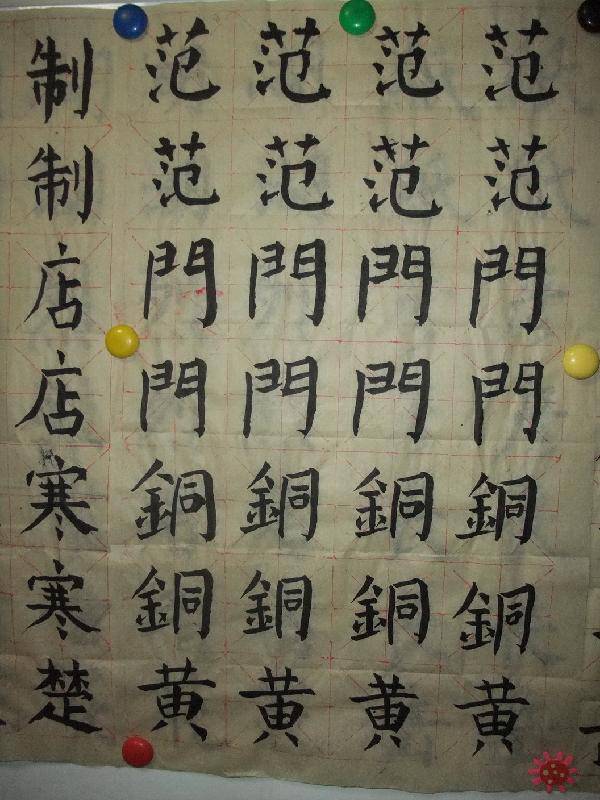 范范門門銅銅黄
范范門門銅銅黄
范范門門銅銅黄
范范門門銅銅黄
制制店店寒寒楚